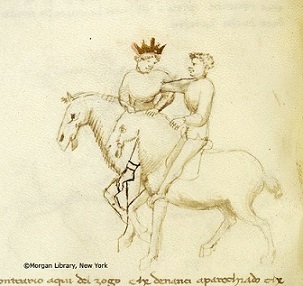 ©Morgan Library, New York
ontrario aqui del zogo denanci aparechiado